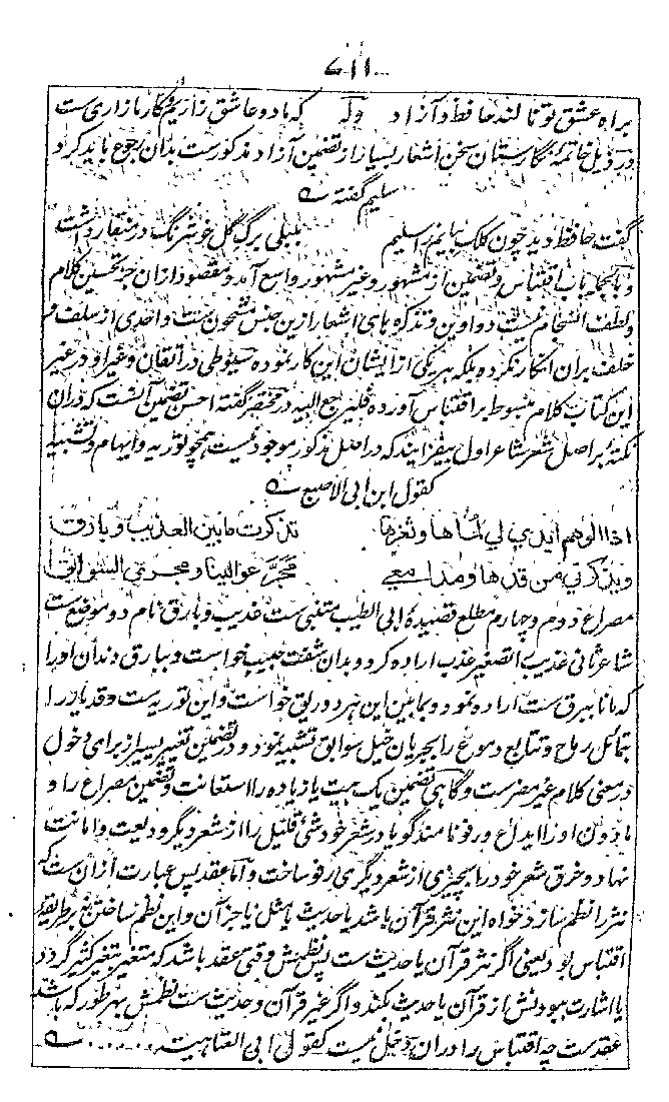 براه عشق تو نالند حافظ و آزاد وله که ما دو عاشق زاریم و کار ما زاری ست
در ذیل خاتمهٔ نگارستان سخن اشعار بسیار از تضمین آزاد مذکورست بدان رجوع باید کرد
سلیم گفته
گفت حافظ دید چون کلک بیاضم را سلیم بلبلی برگ گلی خوشرنگ در منقار داشت
و بالجمله باب اقتباس و تضمین از مشهور و غیر مشهور واسع آمد و مقصود ازان جز تحسین کلام
و لطف انسجام نیست دواوین و تذکره های اشعار ازین جنس مشحون ست و احدی از سلف و
خلف بران انکار نکرده بلکه هر یکی از ایشان این کار نموده سیوطی در اتقان و غیر او در غیر
این کتاب کلام مبسوط بر اقتباس آورده فلیرجع الیه در مختصر گفته احسن تضمین آنست که دران
نکتهٔ بر اصل شعر شاعر اول بیفزایند که در اصل مذکور موجود نیست همچو توریه و ایهام و تشبیه
کقول ابن ابی الاصبع
اذا الوهم ابدی لی لماها و ثغرها تذکرت ما بین العذیب و بارق
و یذکرنی من قدها و مدامعی مجر عوالینا و مجری السوابق
مصراع دوم و چهارم مطلع قصیدهٔ ابی الطیب متنبی ست عذیب و بارق نام دو موضع ست
شاعر ثانی عذیب را تصغیر عذب اراده کرد و بدان شفت حبیب خواست و ببارق دندان اورا
که مانا ببرق ست اراده نمود و بما بین این هر دو ریق خواست و این توریه ست و قد یار را
بتمائل رماح و تتابع دموع را بجریان خیل سوابق تشبیه نمود و در تضمین تغییر یسیر از برای دخول
در معنی کلام غیر مضرست و گاهی تضمین یک بیت یا زیاده را استعانت و تضمین مصراع را و
مادون اورا ایداع و رفو نامند گویا در شعر خود شیٔ قلیل را از شعر دیگر ودیعت و امانت
نهاد و خرق شعر خود را بچیزی از شعر دیگری رفو ساخت و اما عقد پس عبارت ازان ست که
نثر را نظم سازد خواه این نثر قرآن باشد یا حدیث یا مثل یا جز آن و این نظم ساختن نه بر طریقهٔ
اقتباس بود یعنی اگر نثر قرآن یا حدیث ست پس نظمش وقتی عقد باشد که متغیر بتغیر کثیر گردد
یا اشارت ببودنش از قرآن یا حدیث بکند و اگر غیر قرآن و حدیث ست نظمش بهر طور که باشد
عقدست چه اقتباس را دران دخل نیست کقول ابی العتاهیة